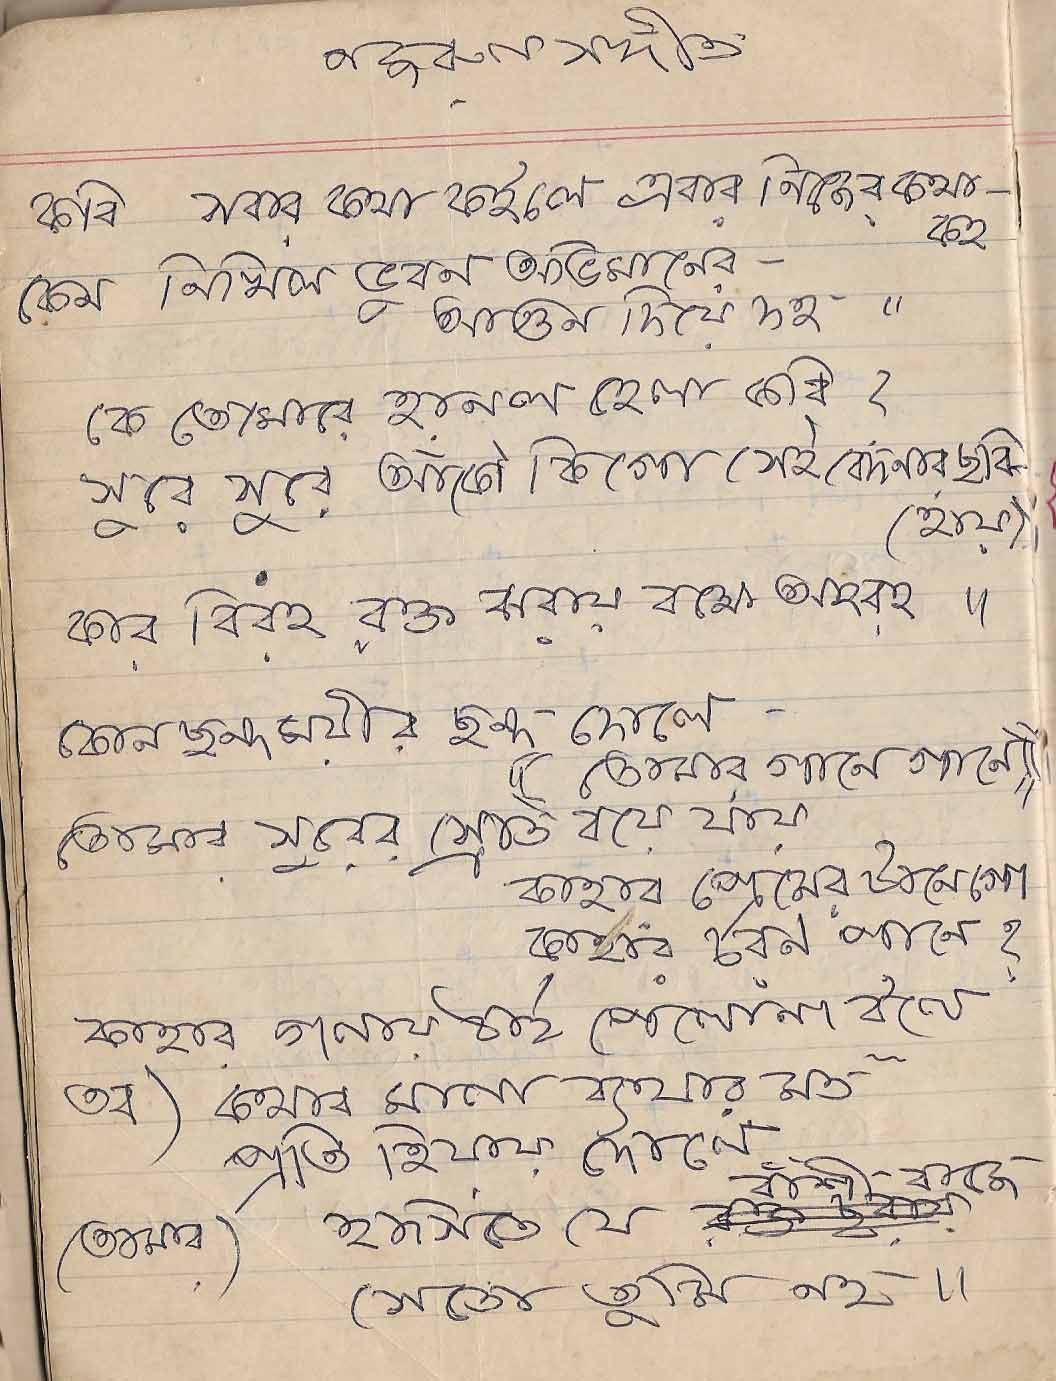 নজরুল সঙ্গীত
কবি সবার কথা কইলে এবার নিজের কথা –
কহ
কেন নিখিল ভুবন অভিমানের –
আগুন দিয়ে দহ ॥
কে তোমারে হানল হেলা কবি ?
সুরে সুরে আঁকো কিগো সেই বেদনার ছবি
(হায়)
কার বিরহ রক্ত ঝরায় বক্ষে অহরহ ॥
কোন ছন্দময়ীর ছন্দ দোলে –
(( তোমার গানে গানে ))
তোমার সুরের স্রোত বয়ে যায়
কাহার প্রেমের টানে গো
কাহার চরন পানে ?
কাহার গলায় ঠাই পেলোনা ব'লে
তব) কথার মালা ব্যথার মত
প্রতি হিয়ায় দোলে
বাঁশী বাজে
(তোমার) হাসিতে যে রক্ত ঝরায়
সেতো তুমি নহ ॥